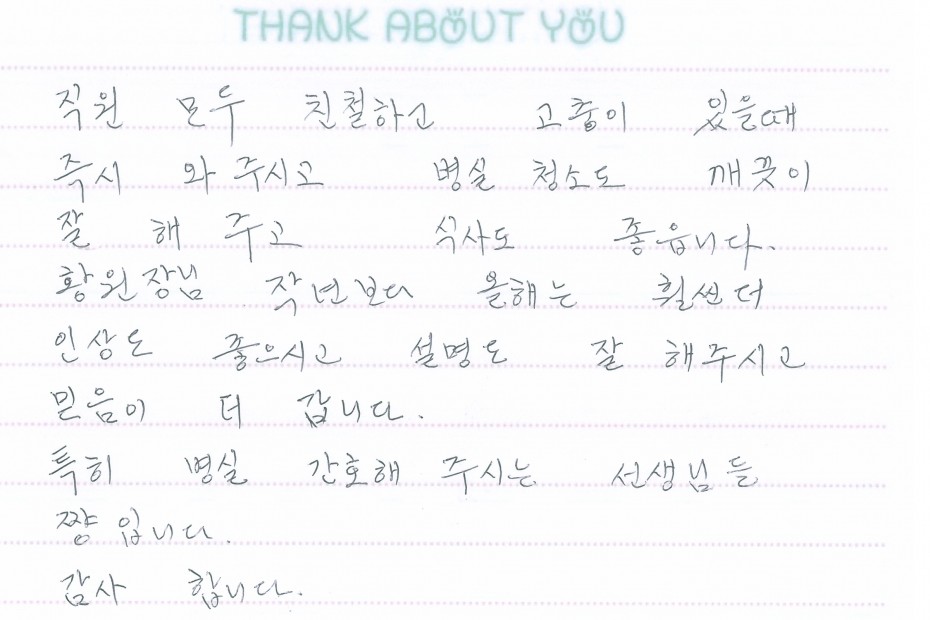 THANK ABOUT YOU
직원 모두 친철하고 고충이 있을때
즉시 와 주시고 병실 청소도 깨끗이
잘 해 주고 식사도 좋읍니다.
황원장님 작년보다 올해는 훨씬 더
인상도 좋으시고 설명도 잘 해주시고
믿음이 더 갑니다.
특히 병실 간호해 주시는 선생님들
짱 입니다.
감사 합니다.